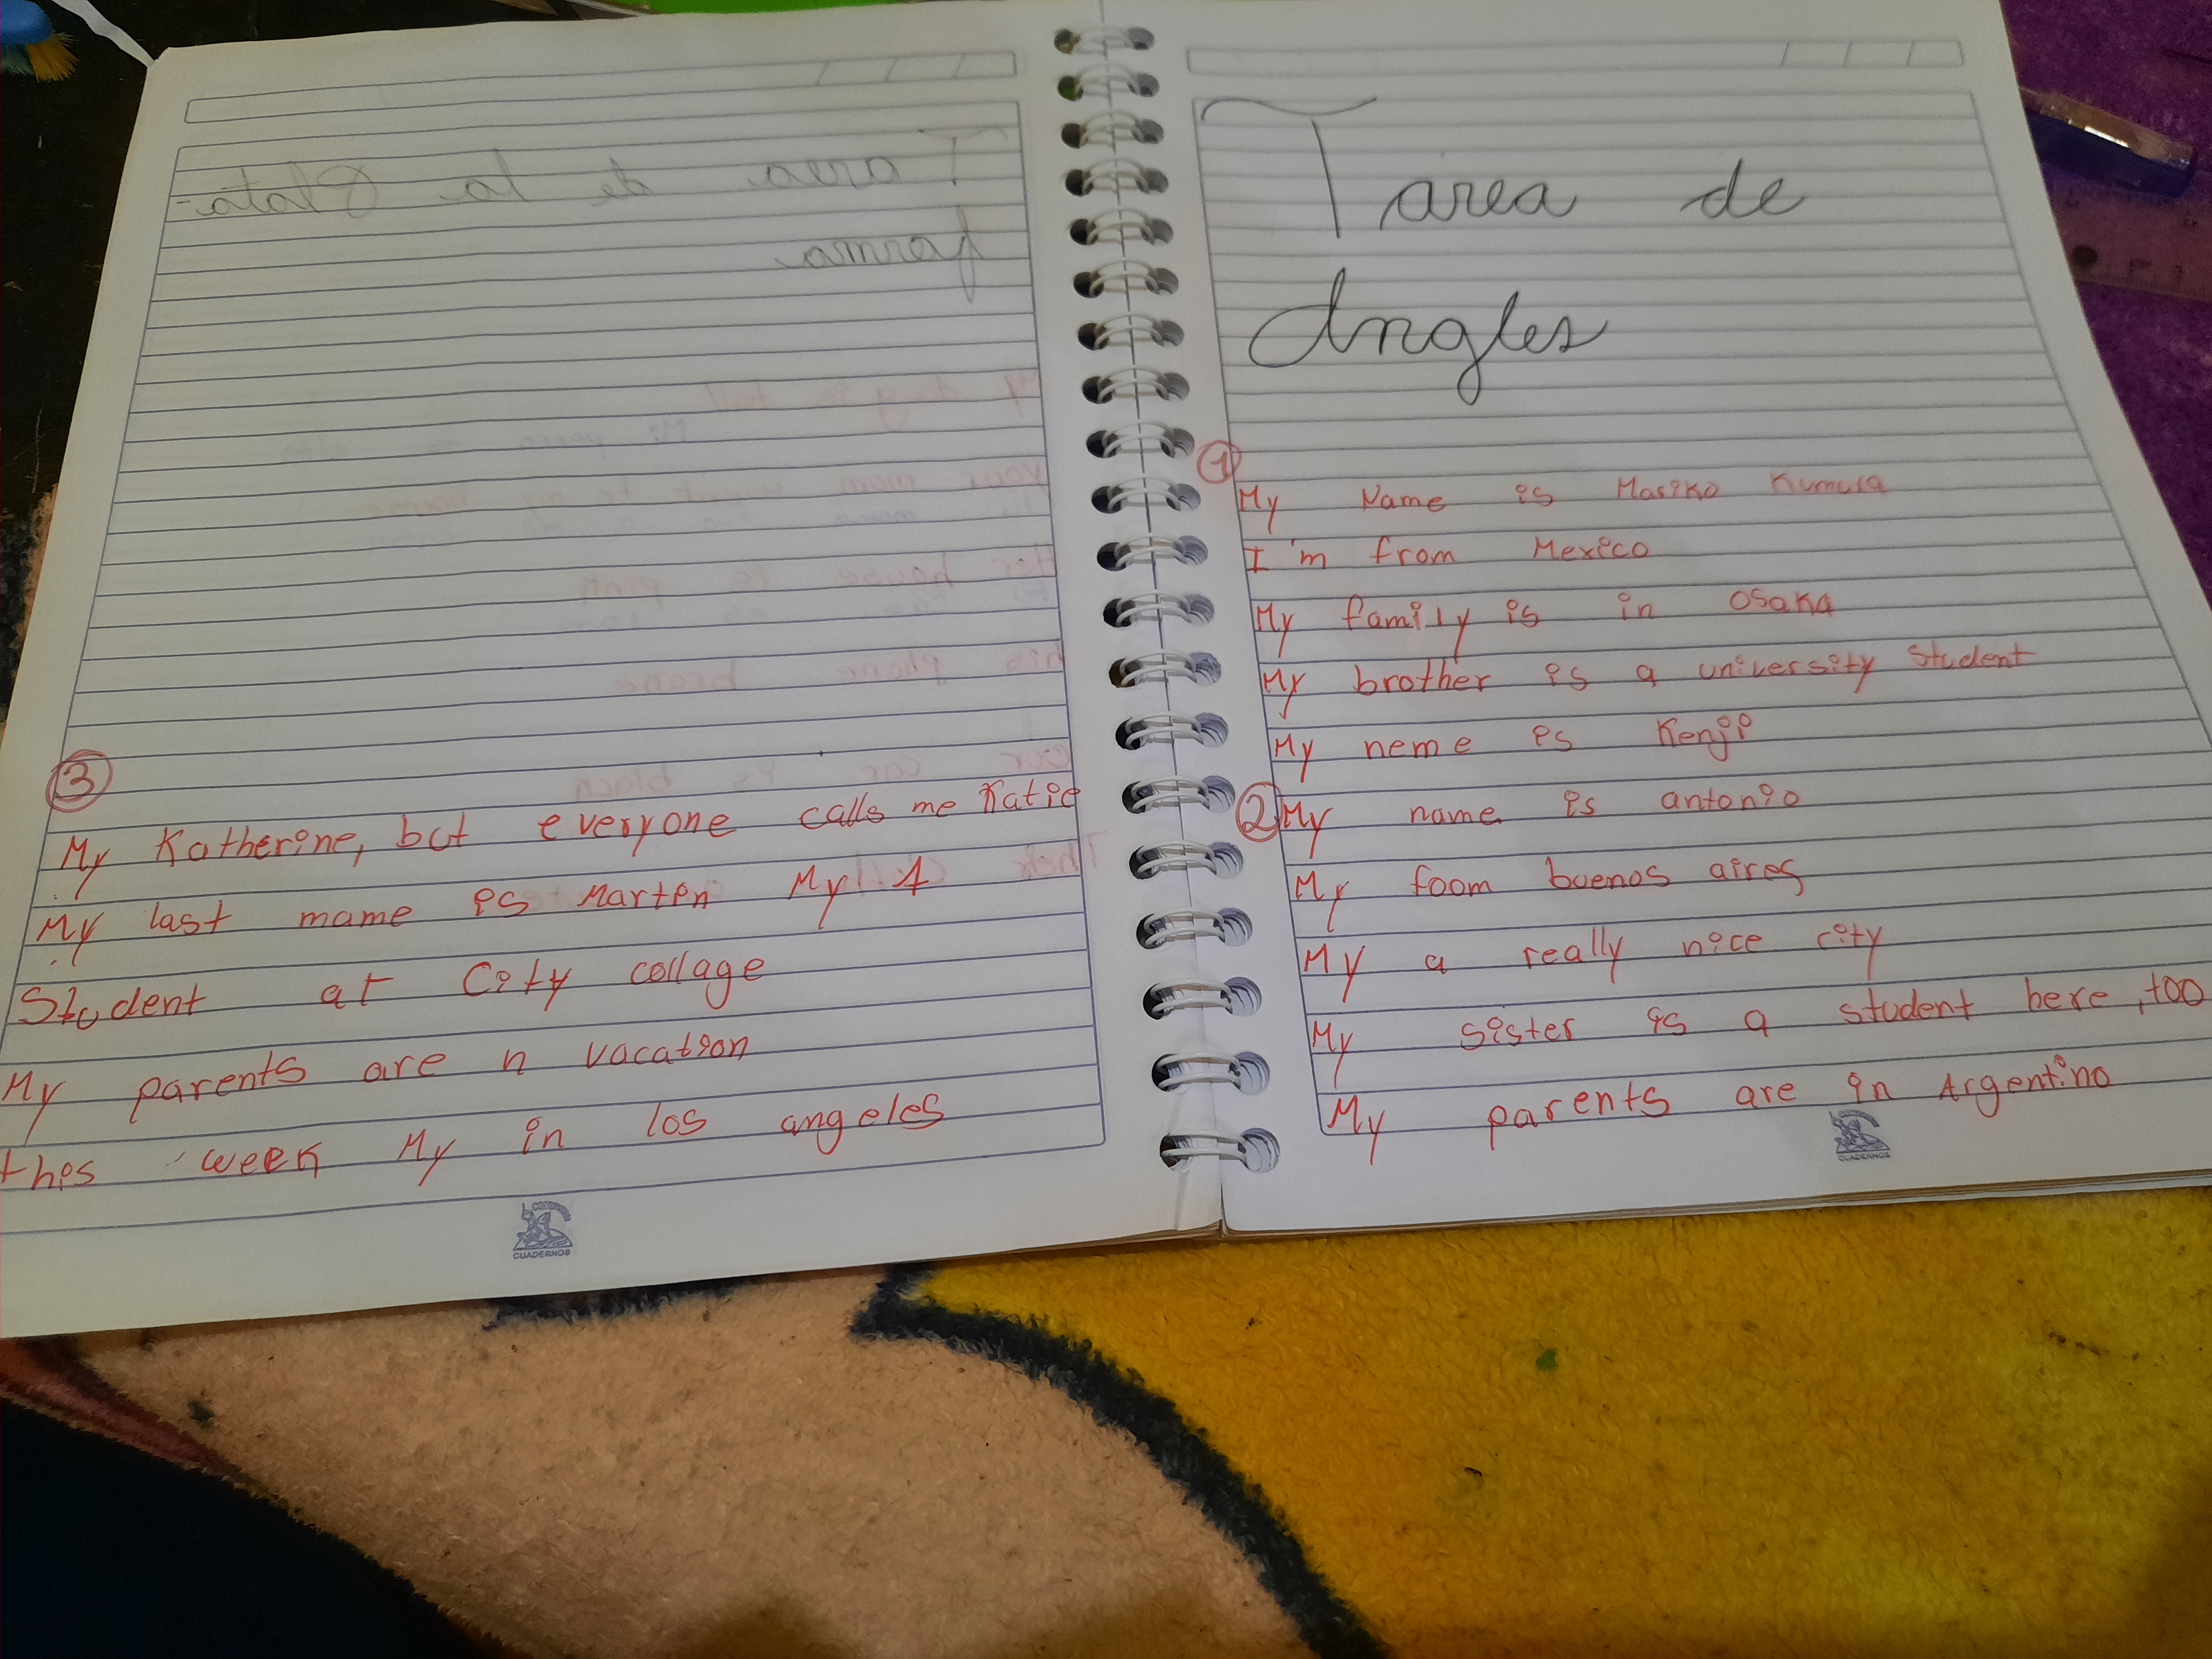 Tarea de
Ingles
1
My Name is Mariko Kumura
I'm from Mexico
My family is in Osaka
My brother is a university student
My neme is Kenji
2 My name is antonio
My foom buenos aires
My a really nice city
My sister is a student here, too
My parents are in Argentino
CUADERNOS
3
My Katherine, but everyone calls me Katie
My last mame is Martin My A
Student at City collage
My parents are n vacation
this week My in los angeles
CUADERNOS